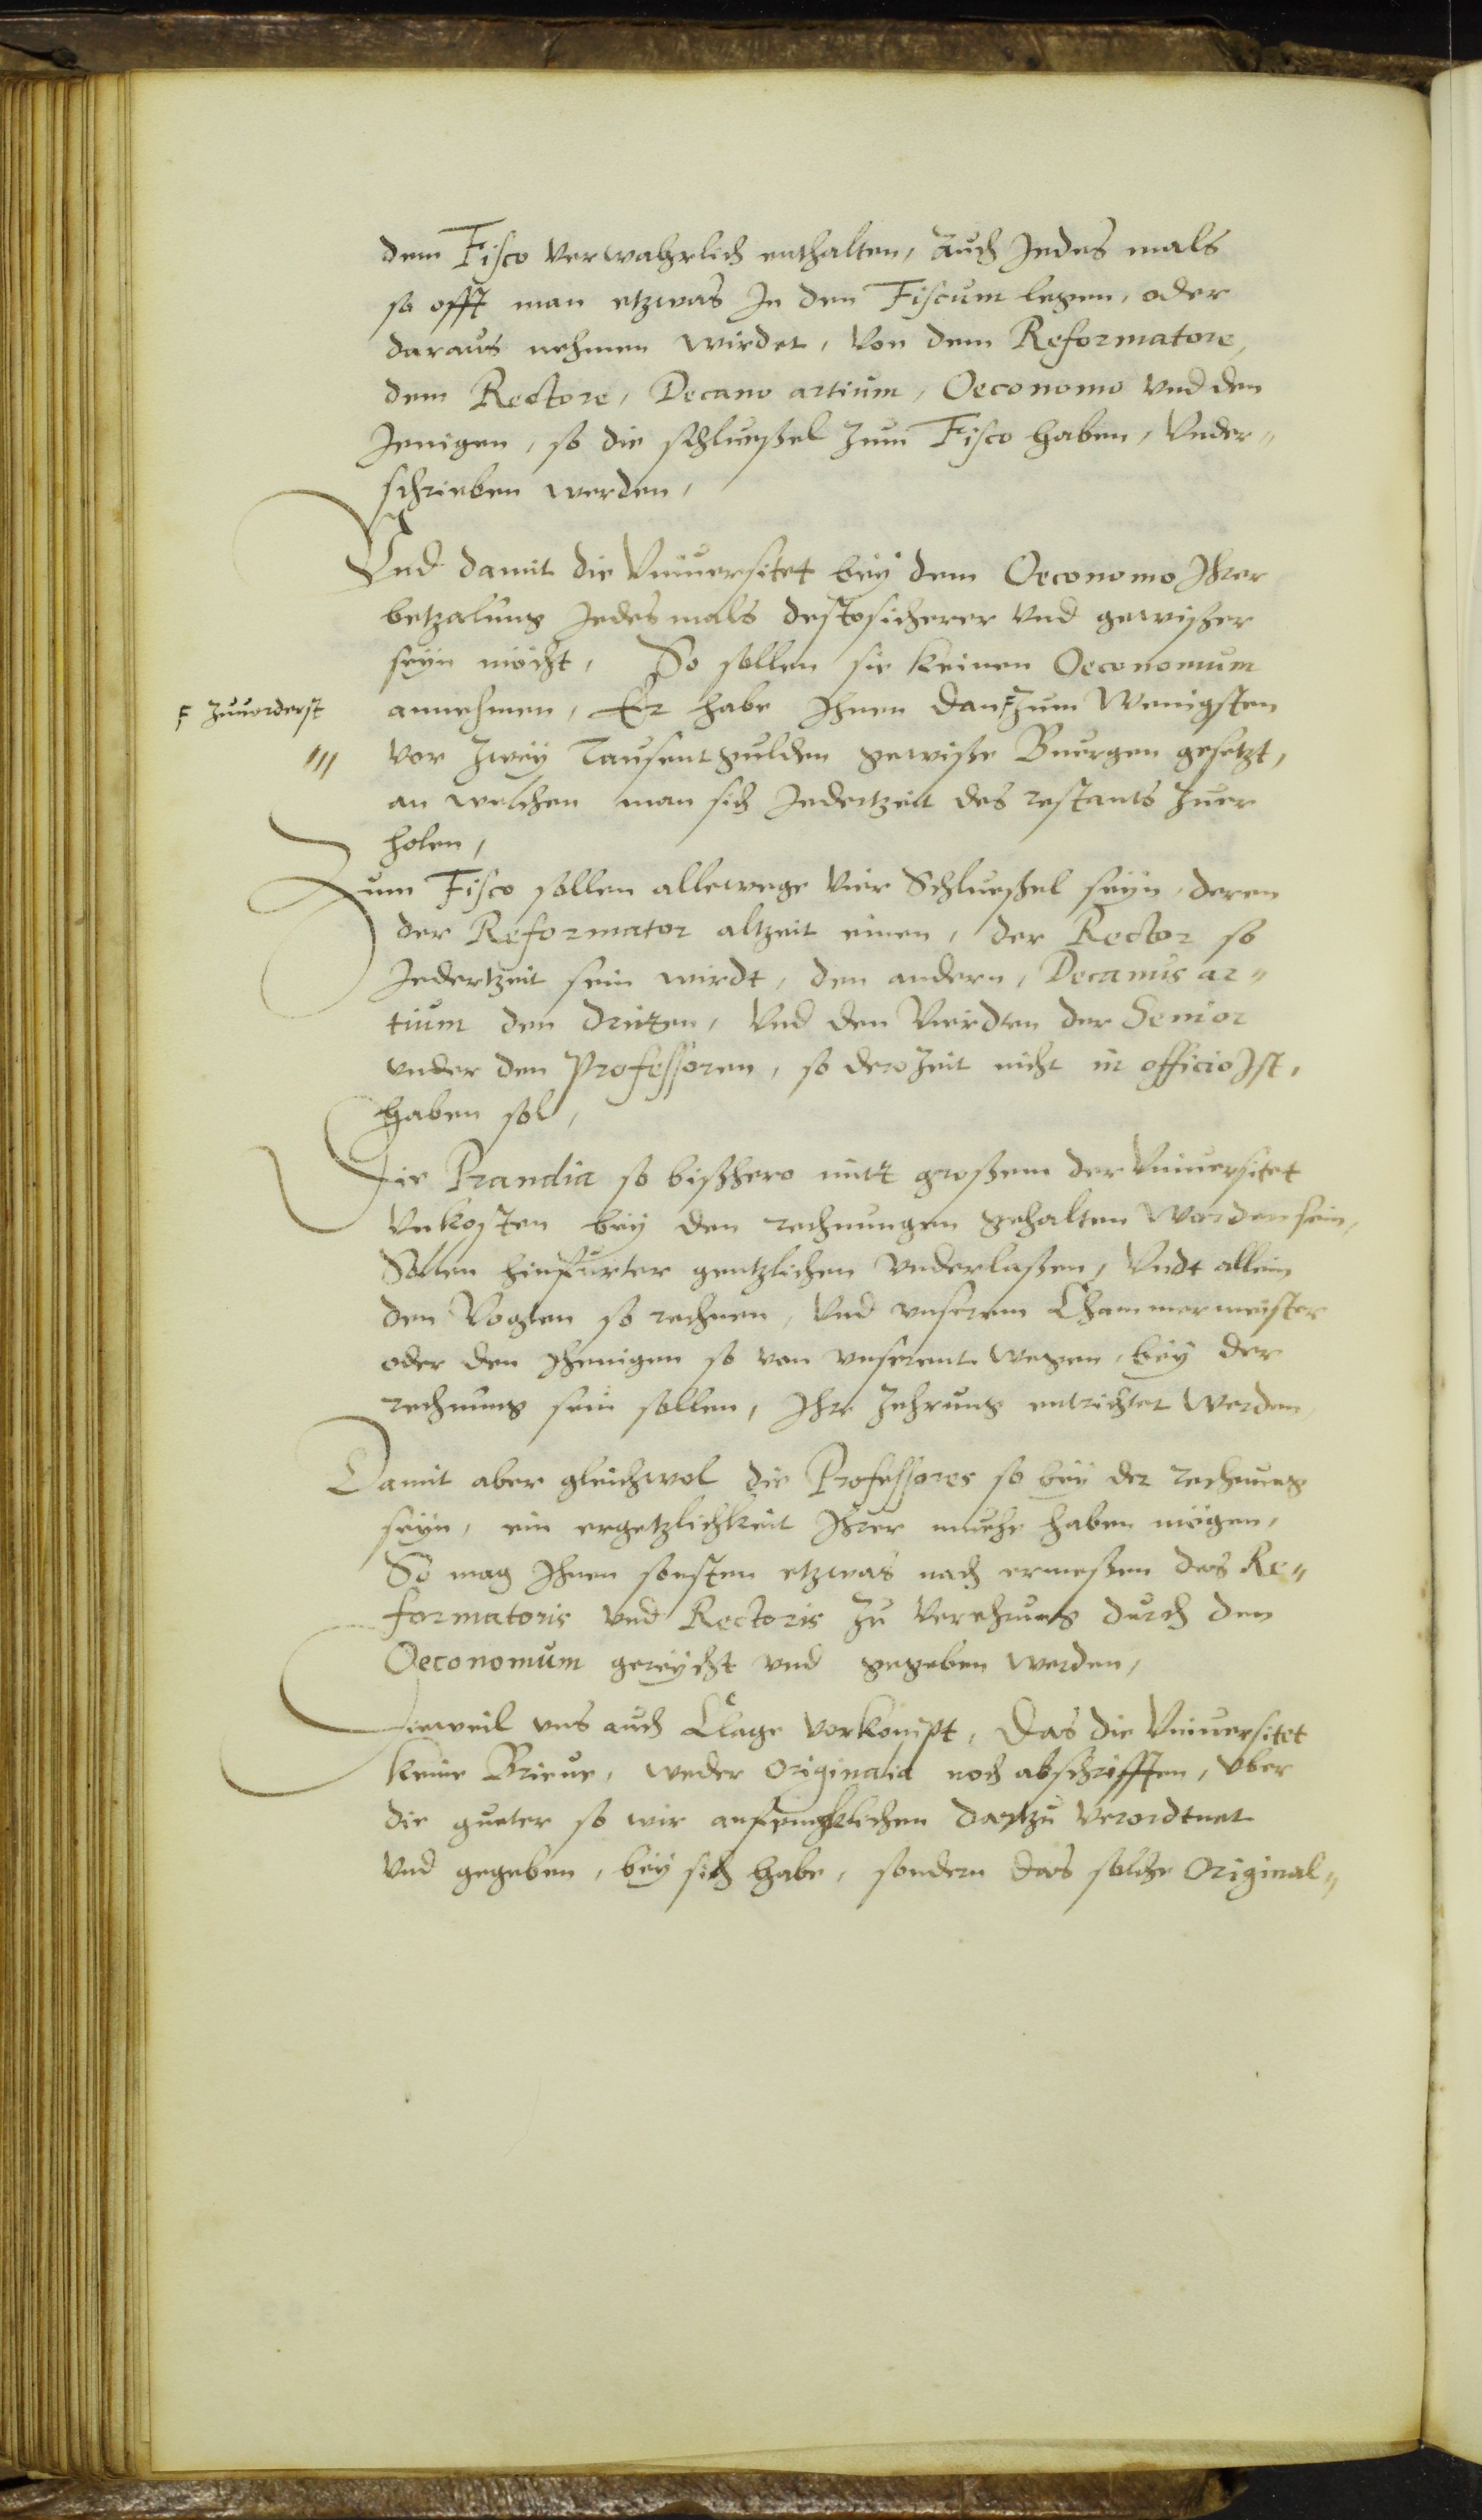 dem Fisco verwahrlich enthalten, auch Jedes mals
so offt man etzwas In den Fiscum legen, oder
daraus nehmen wirdet, von dem Reformatore,
dem Rectore, Decano artium, Oeconomo vnd den
Jenigen, so die schlueßel zum Fisco haben, vnder„
schrieben werden,
Vnd damit die Vniuersitet bey dem Oeconomo Ihrer
betzalung Jedesmals destosicherer vnd gewißer
seyn möcht, So sollen sie keinen Oeconomum
F zuuorderst
annehmen, Er habe Ihnen dan F zum Wenigsten
vor zwey Tausent gulden gewiße Buergen gesetzt,
an welchen man sich Jedertzeit des restants zuer
holen,
Zum Fisco sollen allewege vier Schlueßel seyn, deren
der Reformator altzeit einen, der Rector so
Jedertzeit sein wirdt, den andern, Decanus ar„
tium den dritten, vnd den Vierdten der Senior
vnder den Professoren, so dero Zeit nicht in officio Ist,
haben sol,
Die Prandia so bißhero mitt großem der Vniuersitet
vnkosten bey den rechnungen gehalten worden sein,
Sollen hinfurter gentzlichen vnderlaßen, vndt allein
den Vogten so rechnen, vnd vnserem Chammermeister
oder den Jhenigen so von vnserent wegen, bey der
rechnung sein sollen, Ihr Zehrung entrichtet werden,
Damit aber gleichwol die Professores so bey der rechnung
seyn, ein ergetzlichkeit Ihrer muehe haben mögen,
So mag Ihnen sonsten etzwas nach ermeßen des Re„
formatoris vnd Rectoris zu Verehrung durch den
Oeconomum gereycht vnd gegeben werden,
Dieweil vns auch Clage vorkompt, Das die Vniuersitet
keine Brieue, weder Originalia noch abschrifften, vber
die gueter so wir anfenchklichen dartzu verordtnet
vnd gegeben, bey sich habe, sondern das solche Original„